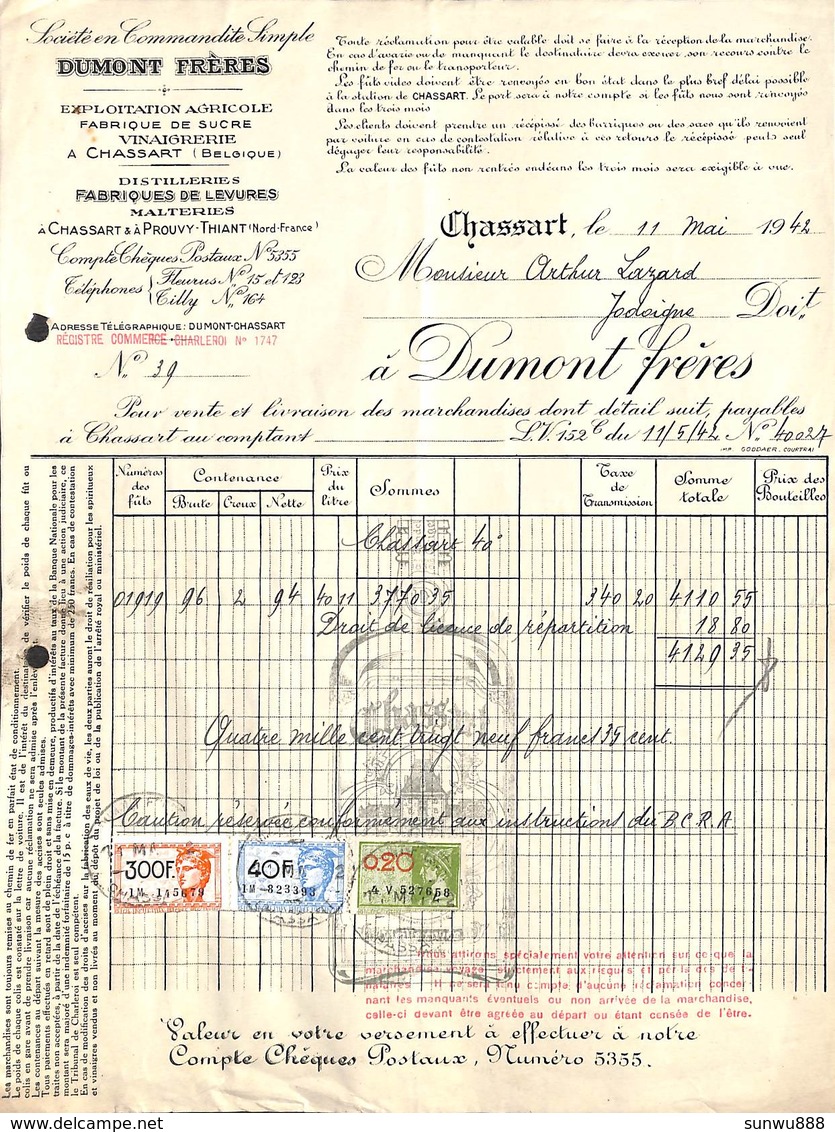 Société en Commandite Simple
DUMONT FRÈRES
EXPLOITATION AGRICOLE
FABRIQUE DE SUCRE
VINAIGRERIE
A CHASSART (BELGIQUE)
DISTILLERIES
FABRIQUES DE LEVURES
MALTERIES
À CHASSART & À PROUVY-THIANT (Nord-France)
Compte Chèques Postaux No 5355
Téléphones { Fleurus No 15 et 123
Tilly No 164
ADRESSE TÉLÉGRAPHIQUE: DUMONT-CHASSART
RÉGISTRE COMMERCE CHARLEROI No 1747
No 39
Toute réclamation pour être valable doit se faire à la réception de la marchandise.
En cas d'avarie ou de manquant le destinataire devra exercer son recours contre le
chemin de fer ou le transporteur.
Les fûts vides doivent être renvoyés en bon état dans le plus bref délai possible
à la station de CHASSART. Le port sera à notre compte si les fûts nous sont renvoyés
dans les trois mois
Les clients doivent prendre un récépissé des barriques ou des sacs qu'ils renvoient
par voiture en cas de contestation relative à ces retours le récépissé peut seul
dégager leur responsabilité.
La valeur des fûts non rentrés endéans les trois mois sera exigible à vue.
Chassart, le 11 Mai 1942
Monsieur Arthur Lazard
Jodoigne Doit
à Dumont frères
Pour vente et livraison des marchandises dont détail suit, payables
à Chassart au comptant L.V. 152c du 11/5/42 No 40027
IMP. GODDAER, COURTRAI
Numéros des fûts | Contenance Brute Creux Nette | Prix du litre | Sommes | Taxe de Transmission | Somme totale | Prix des Bouteilles
Chassart 40°
01919 96 2 94 40 11 3770 35 340 20 4110 55
Droit de licence de répartition 18 80
4129 35
Quatre mille cent vingt neuf francs 35 cent.
Caution réservée conformément aux instructions du B.C.R.A
300F. 40F 0.20
1M -145679 1M -823393 4 V 527658
Nous attirons spécialement votre attention sur ce que la
marchandise voyage strictement aux risques et périls des desti-
nataires. Il ne sera tenu compte d'aucune réclamation concer-
nant les manquants éventuels ou non arrivée de la marchandise,
celle-ci devant être agréée au départ ou étant censée de l'être.
Valeur en votre versement à effectuer à notre
Compte Chèques Postaux, Numéro 5355.
Les marchandises sont toujours remises au chemin de fer en parfait état de conditionnement.
Le poids de chaque colis est constaté sur la lettre de voiture. Il est de l'intérêt du destinataire de vérifier le poids de chaque fût ou
colis en gare avant de prendre livraison car aucune réclamation ne sera admise après l'enlèvement.
Les contenances au départ suivant la mesure des accises sont seules admises.
Tous paiements effectués en retard sont de plein droit et sans mise en demeure, productifs d'intérêts au taux de la Banque Nationale pour les
traites non acceptées, à partir de la date de l'échéance de la facture. Si le montant de la présente facture donne lieu à une action judiciaire, ce
montant sera majoré d'une indemnité forfaitaire de 15 p. c à titre de dommages-intérêts avec minimum de 250 francs. En cas de contestation
le Tribunal de Charleroi est seul compétent.
En cas de modification des droits d'accises sur la fabrication des eaux de vie, les deux parties auront le droit de résiliation pour les spiritueux
et vinaigres vendus et non livrés au moment du dépôt du projet de loi ou de la publication de l'arrêté royal ou ministériel.
sunwu888
www.delcampe.net
sunwu888